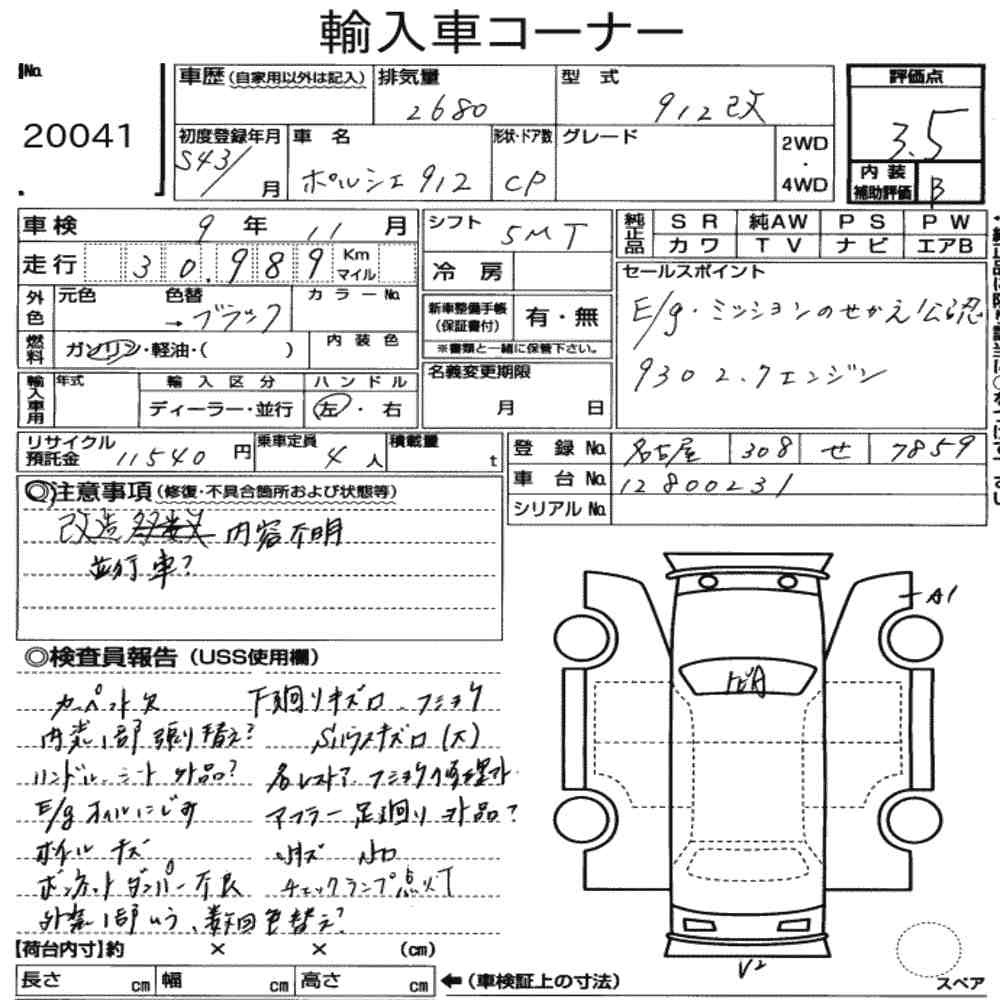 輸入車コーナー
No.
20041
車歴(自家用以外は記入)
排気量
2680
型 式
912改
評価点
3.5
初度登録年月
S43/ 月
車 名
ポルシェ912
形状・ドア数
CP
グレード
2WD
・
4WD
内 装
補助評価
B
車検 9 年 11 月
走行 30,989 Km マイル
シフト 5MT
冷 房
純正品
SR 純AW PS PW
カワ TV ナビ エアB
セールスポイント
E/g・ミッションのせかえ公認
930 2.7エンジン
外色
元色 色替
→ブラック
カラーNo.
燃料
ガソリン・軽油・( )
内 装 色
新車整備手帳
(保証書付)
有・無
※書類と一緒に保管下さい。
輸入車用
年式
輸 入 区 分
ディーラー・並行
ハ ン ド ル
左 ・ 右
名義変更期限
月 日
リサイクル
預託金
11540 円
乗車定員
4 人
積載量
t
登 録 No. 名古屋 308 せ 7859
車 台 No. 12800231
シリアル No.
◎注意事項(修復・不具合箇所および状態等)
改造 内容不明
並行車?
◎検査員報告(USS使用欄)
カーペット欠 下廻りキズロ フショク
内装1部張り替え? (大)
ハンドル、シート外品?
E/gオイルにじみ マフラー足廻り外品?
ホイルキズ
ボンネットダンパー不良 チェックランプ点灯
外装1部 数回色替え?
A1
トビA
V2
【荷台内寸】約 × × (cm)
長さ cm 幅 cm 高さ cm ←(車検証上の寸法)
スペア